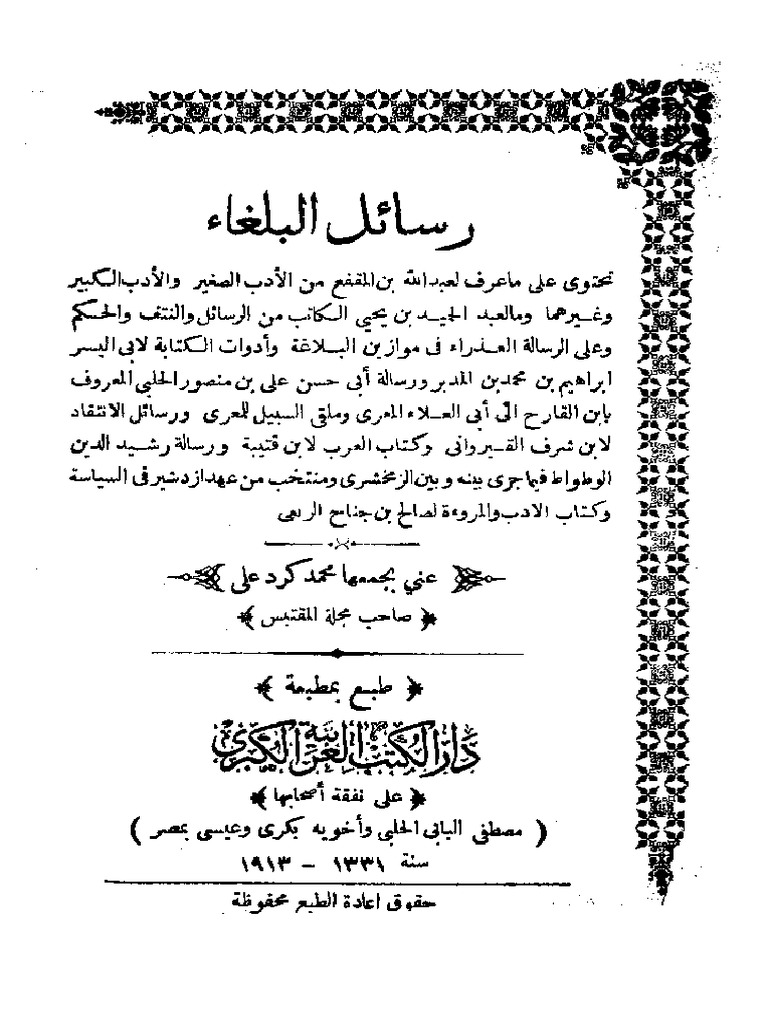 رسائل البلغاء
تحتوى على ما عرف لعبد الله بن المقفع من الأدب الصغير والأدب الكبير
وغيرهما ومالعبد الحميد بن يحيى الكاتب من الرسائل والنتف والحكم
وعلى الرسالة العذراء فى موازين البلاغة وأدوات الكتابة لابى اليسر
ابراهيم بن محمد بن المدبر ورسالة أبى حسن على بن منصور الحلبى المعروف
بابن القارح الى أبى العلاء المعرى وملقى السبيل للمعرى ورسائل الانتقاد
لابن شرف القيروانى وكتاب العرب لابن قتيبة ورسالة رشيد الدين
الوطواط فيما جرى بينه وبين الزمخشرى ومنتخب من عهد ازدشير فى السياسة
وكتاب الادب والمروءة لصالح بن جناح الربعى
عني بجمعها محمد كرد على
﴿ صاحب مجلة المقتبس ﴾
﴿ طبع بمطبعة ﴾
دار الكتب العربية الكبرى
﴿ على نفقة أصحابها ﴾
( مصطفى البابى الحلبى وأخويه بكرى وعيسى بمصر )
سنة ١٣٣١ - ١٩١٣
حقوق اعادة الطبع محفوظة